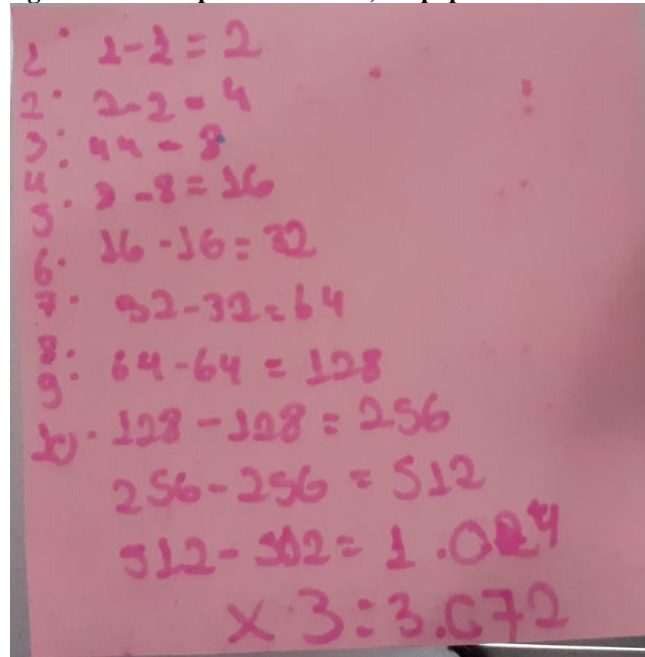 1. 1-1=2
2. 2-2-4
3. 44-8
4. 8-8=16
5. 16-16=32
6. 32-32=64
7. 64-64=128
8. 128-128=256
9. 256-256=512
10. 512-512=1.024
x.3=3.072